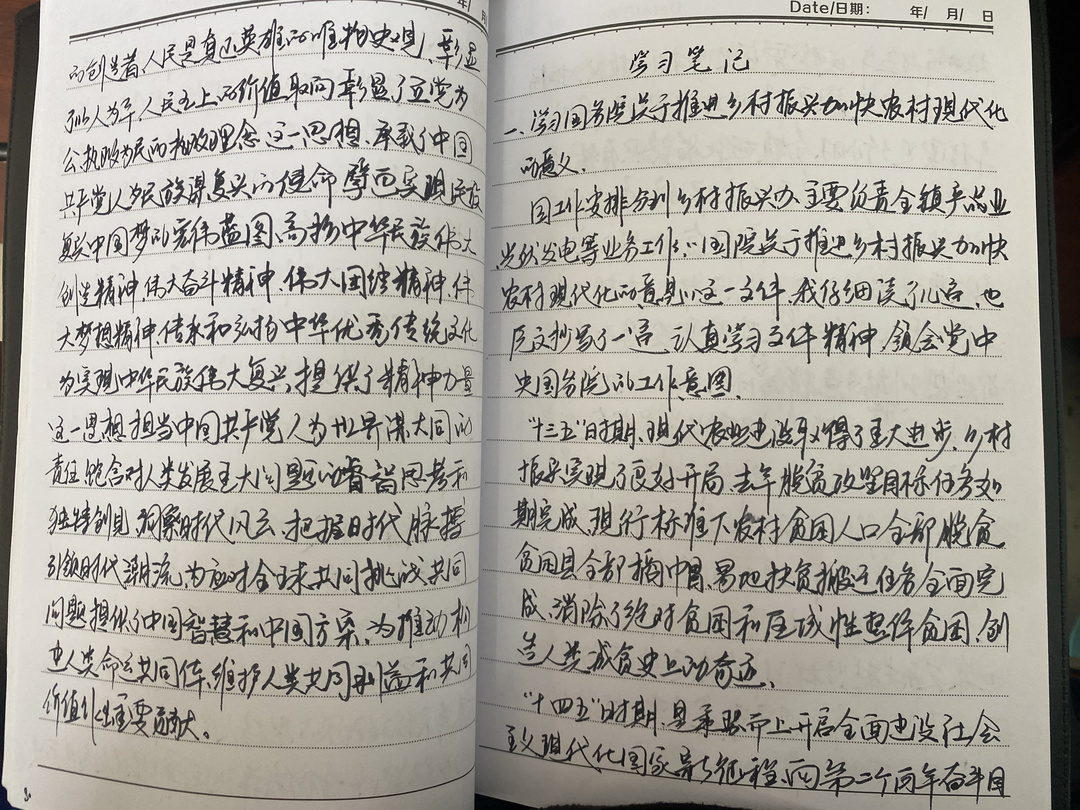 年/ 月/
的创造者、人民是真正英雄的唯物史观、彰显
了以人为本、人民至上的价值取向彰显了立党为
公、执政为民的执政理念这一思想、承载了中国
共产党人为民族谋复兴的使命 擘画实现民族
复兴中国梦的宏伟蓝图、高扬中华民族伟大
创造精神、伟大奋斗精神、伟大团结精神、伟
大梦想精神、传承和弘扬中华优秀传统文化
为实现中华民族伟大复兴、提供了精神力量
这一思想、担当中国共产党人为世界谋大同的
责任、饱含对人类发展重大问题的睿智思考和
独特创见、洞察时代风云、把握时代脉搏
引领时代潮流、为应对全球共同挑战、共同
问题提供了中国智慧和中国方案、为推动构
建人类命运共同体、维护人类共同利益和共同
价值作出重要贡献。
Date/日期: 年/ 月/ 日
学习笔记
一、学习国务院关于推进乡村振兴加快农村现代化
的意义、
因工作安排分到乡村振兴办、主要负责全镇产品业
光伏发电等业务工作、国院关于推进乡村振兴加快
农村现代化的意见》这一文件、我仔细读了几 、也
原文抄写了一 、认真学习文件精神、领会党中
央国务院的工作意图、
"十三五"时期、现代农业建设取得了重大进步、乡村
振兴实现了良好开局、去年脱贫攻坚目标任务如
期完成、现行标准下农村贫困人口全部脱贫
贫困县全部摘帽、易地扶贫搬迁任务全面完
成、消除了绝对贫困和区域性整体贫困、创
造人类减贫史上的奇迹、
"十四五"时期、是乘势而上开启全面建设社会
主义现代化国家新征程、向第二个百年奋斗目